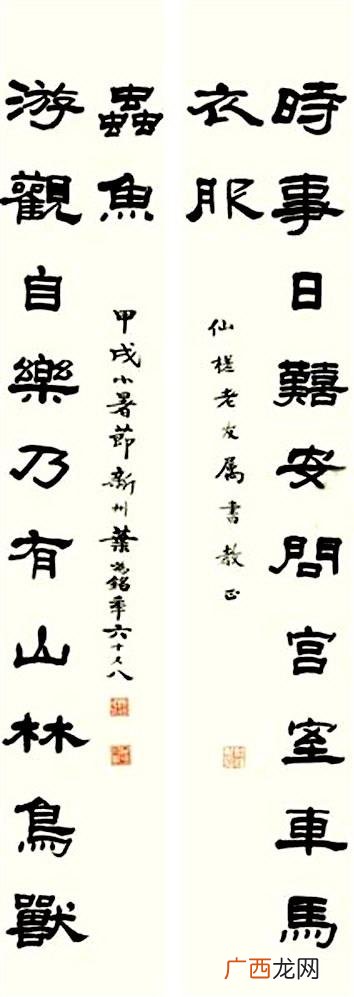 時事日囏安問宮室車馬
衣服
仙槎老友属書教正
游觀自樂乃有山林鳥獸
蟲魚
甲戌小暑節新州葉為銘年六十又八
广西龙网